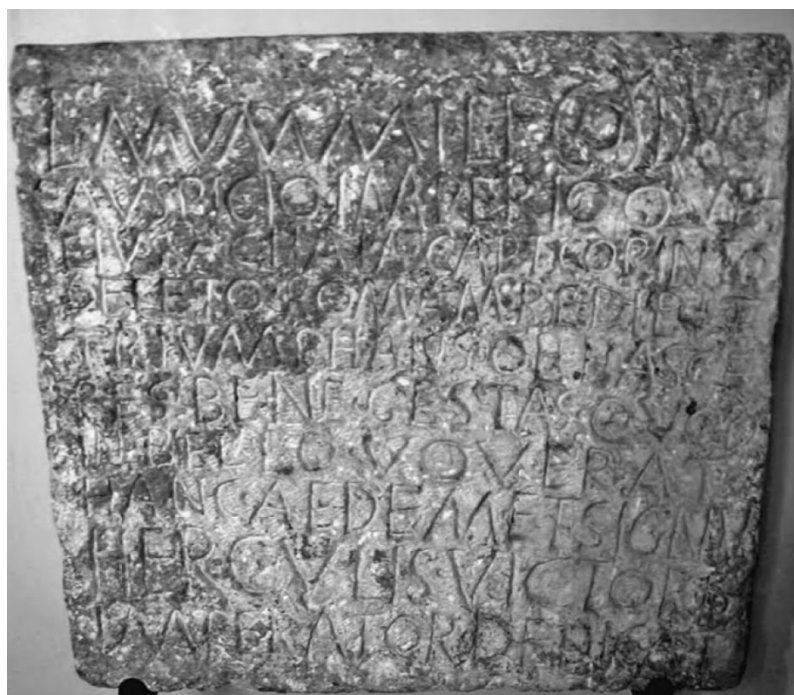 L MVMMI L F COS DVCT
AVSPICIO IMPERIO QVE
EIVS ACHAIA CAPT CORINTO
DELETO ROMAM REDIEIT
TRIVMPHANS OB HASCE
RES BENE GESTAS QVOD
IN BELLO VOVERAT
HANC AEDEM ET SIGNV
HERCVLIS VICTORIS
IMPERATOR DEDICAT